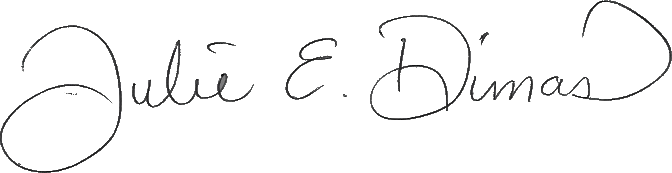 Julie E. Dimas